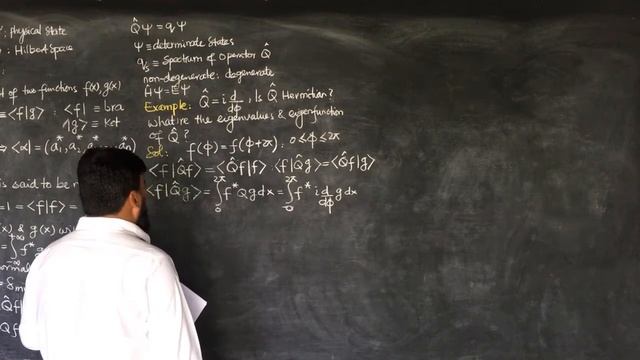 : Physical State
: Hilbert Space
t of two functions f(x), g(x)
≡ <f|g> : <f| ≡ bra
|g> ≡ Ket
⇒ <α| = (a₁*, a₂*
is said to be n
= 1 = <f|f> =
(x) & g(x) w
= ∫ f* g
normal
= δm
Q̂ψ = qψ
ψ ≡ determinate States
q's ≡ Spectrum of Operator Q̂
non-degenerate: degenerate
Ĥψ = Eψ
Example: Q̂ = i d/dϕ, Is Q̂ Hermitian?
What're the eigenvalues & eigenfunction
of Q̂ ?
Sol: f(ϕ) = f(ϕ+2π) : 0 ≤ ϕ ≤ 2π
<f|Q̂f> = <Q̂f|f> : <f|Q̂g> = <Q̂f|g>
<f|Q̂g> = ∫₀^2π f* Q g dx = ∫₀^2π f* i d/dϕ g dx